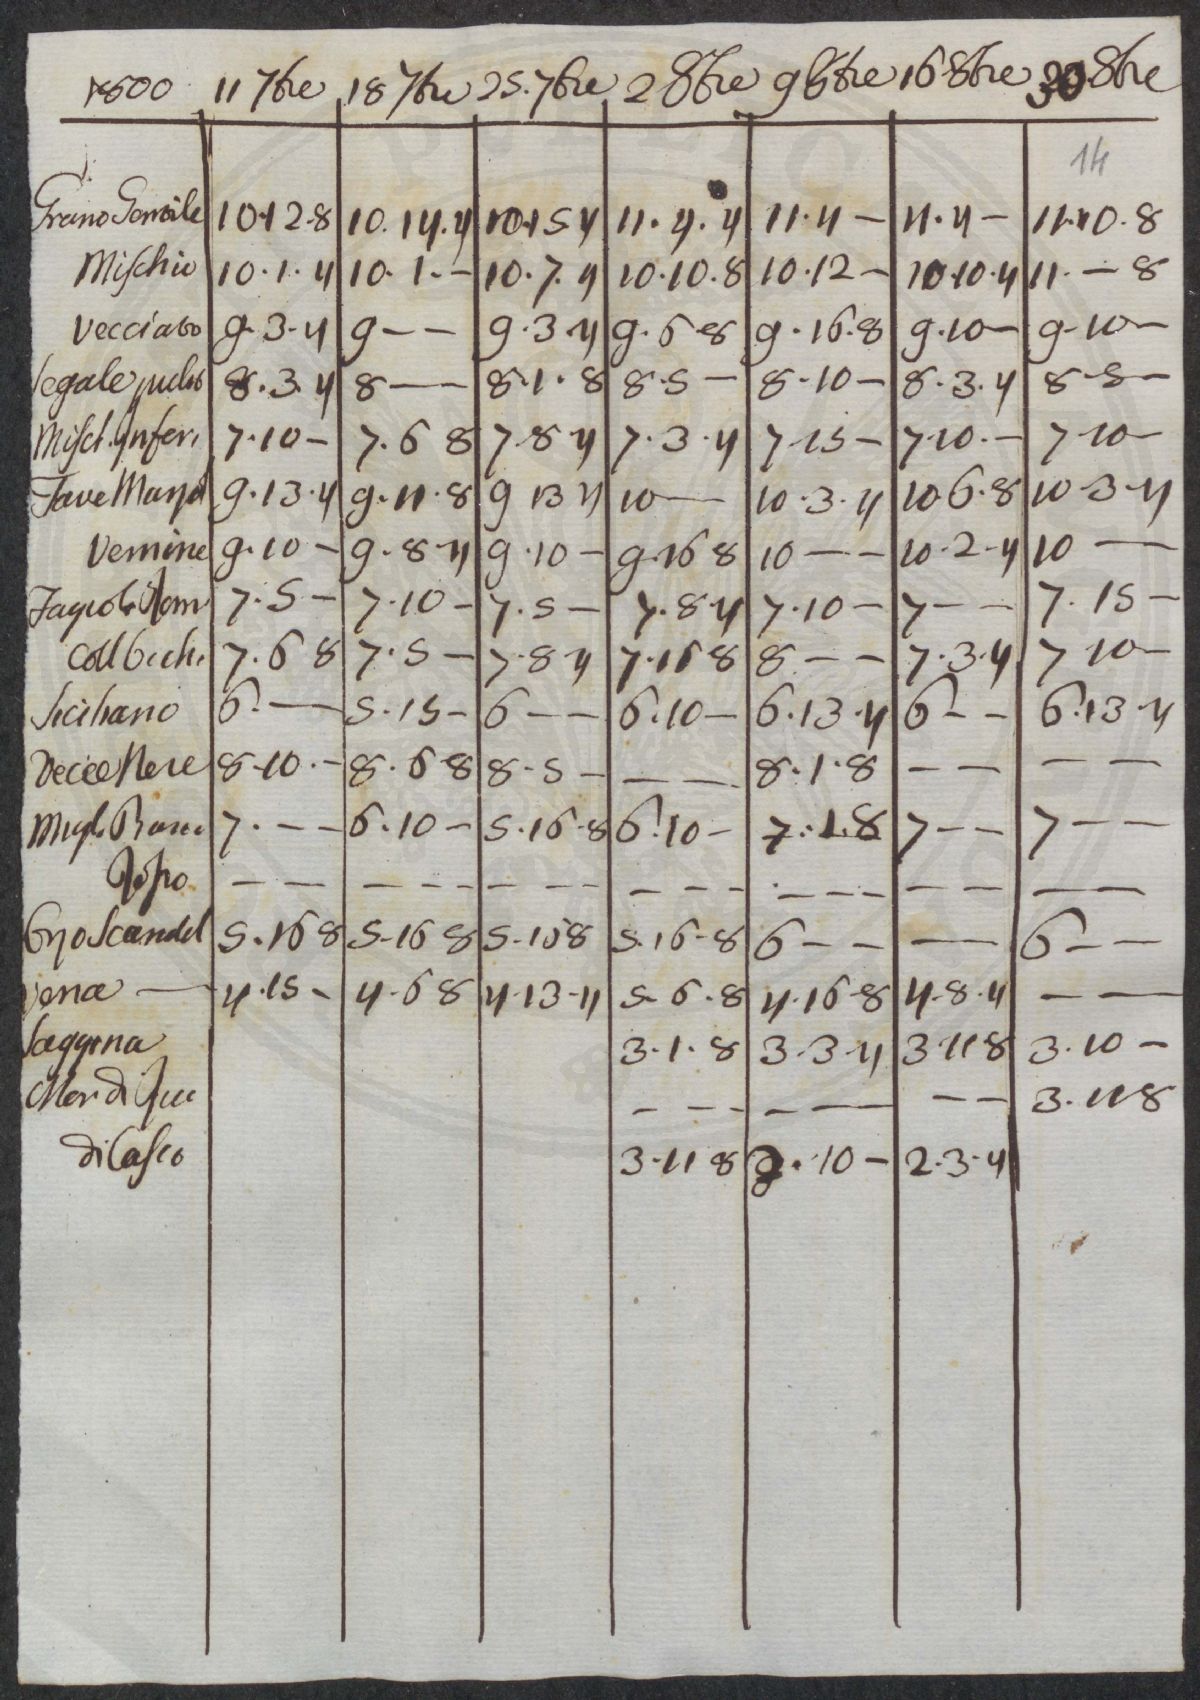 11 7bre 18 7bre 25. 7bre 2 8bre 9 8bre 16 8bre 8bre
14
Grano Gentile 10.12.8 10.14.4 10.15 4 11.4.4 11.4 — 11.4 — 11.10.8
Mischio 10.1.4 10.1.- 10.7.4 10.10.8 10.12 — 10.10.4 11.— 8
Vecciato 9.3.4 9 — — 9.3.4 9.6 8 9.16.8 9.10 — 9.10 —
Segale 8.3.4 8 — 8.1.8 8.5 — 8.10 — 8.3.4 8.5 —
Misch. Inferi 7.10 — 7.6 8 7.8 4 7.3.4 7.15 — 7.10.— 7 10 —
Fave 9.13.4 9.11.8 9 13 4 10 — 10.3.4 10.6.8 10.3.4
Vernine 9.10 — 9.8.4 9.10 — 9.16 8 10 — — 10.2.4 10 —
7.5 — 7.10 — 7.5 — 7.8.4 7.10 — 7 — — 7.15 —
7.6 8 7.5 — 7.8 4 7.16 8 8 — — 7.3.4 7 10 —
Siciliano 6.— 5.15 — 6 — — 6.10 — 6.13.4 6 — — 6.13.4
Vecce Nere 8.10.— 8.6 8 8.5 — — — 8.1.8 — — — —
Migl. 7.— — 6.10 — 5.16.8 6.10 — 7.1.8 7 — — 7 — —
— — — — — — — — — — — — — — — — —
Orzo Scandel 5.16 8 5.16 8 5.16 8 5.16.8 6 — — — — 6 — —
Vena — 4.15 — 4.6 8 4.13.4 5.6.8 4.16.8 4.8.4 — —
Saggina 3.1.8 3.3.4 3.11 8 3.10 —
— — — — — — — 3.11 8
3.11 8 10 — 2.3.4